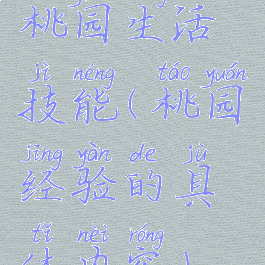 桃园生活
jì néng táo yuán
技能(桃园
jīng yàn de jù
经验的具
tǐ nèi róng
体内容)